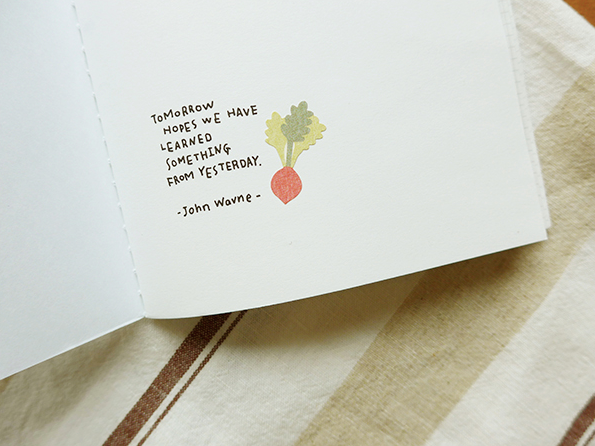 TOMORROW
HOPES WE HAVE
LEARNED
SOMETHING
FROM YESTERDAY.
-John Wayne-